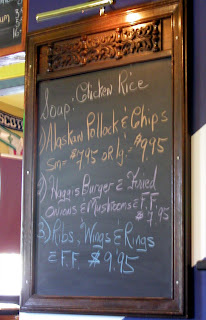 Soup, Chicken Rice
1) Alaskan Pollock & Chips
Sm = $7.95 or lg = $9.95
2) Haggis Burger & Fried
Onions & Mushrooms & F.F.
$7.95
3) Ribs, Wings & Rings
& F.F. $9.95